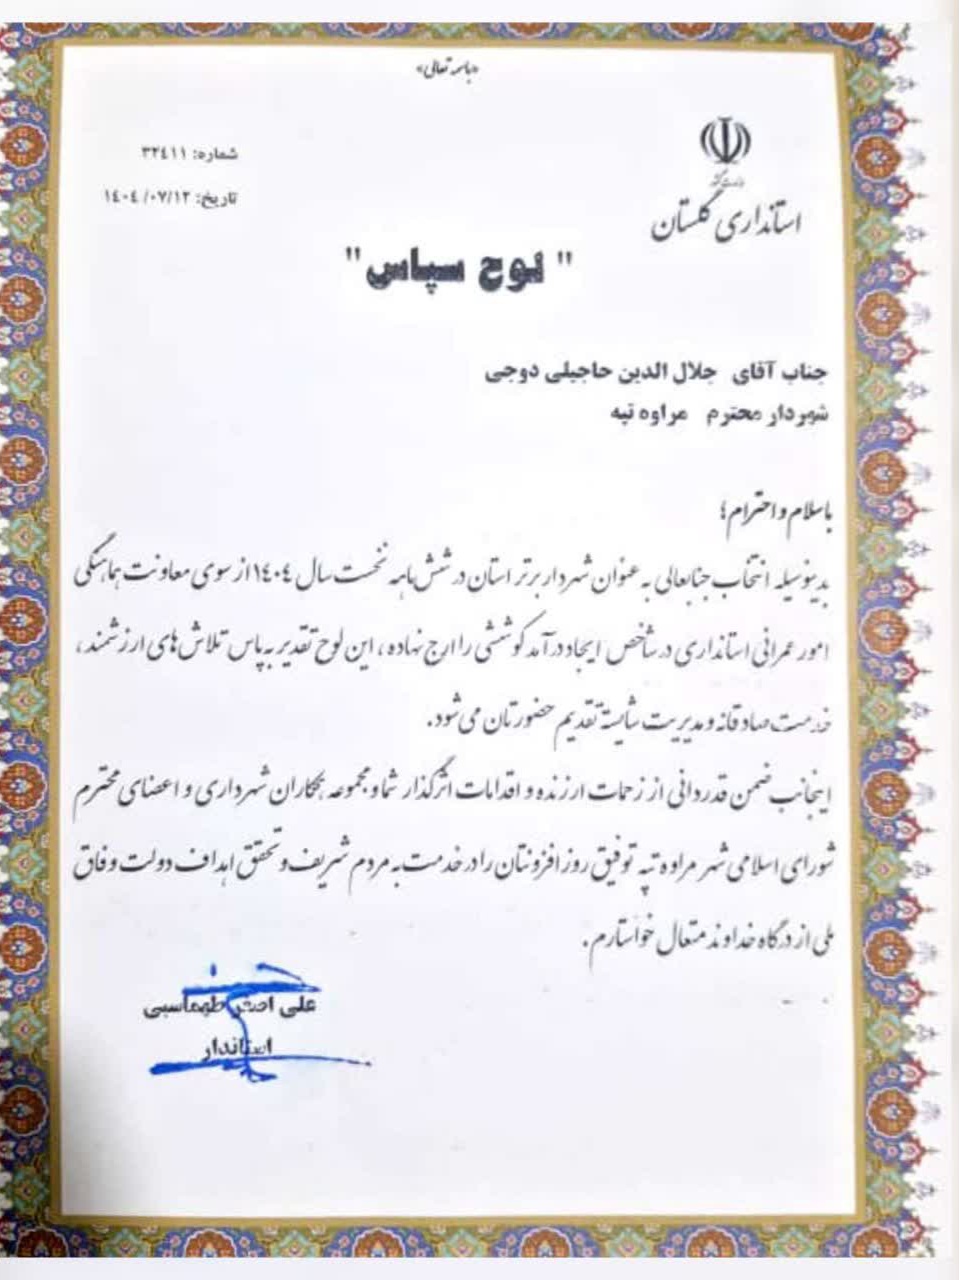 «باسمه تعالی»
شماره: ۳۲۴۱۱
تاریخ: ۱۴۰۴/۰۷/۱۲
استانداری گلستان
" لوح سپاس "
جناب آقای جلال الدین حاجیلی دوجی
شهردار محترم مراوه تپه
باسلام و احترام؛
بدینوسیله انتخاب جنابعالی به عنوان شهردار برتر استان در شش ماهه نخست سال ۱۴۰۴ از سوی معاونت هماهنگی
امور عمرانی استانداری در شاخص ایجاد درآمد کوششی را ارج نهاده، این لوح تقدیر به پاس تلاش های ارزشمند،
خدمت صادقانه و مدیریت شایسته تقدیم حضورتان می شود.
اینجانب ضمن قدردانی از زحمات ارزنده و اقدامات اثرگذار شما و مجموعه همکاران شهرداری و اعضای محترم
شورای اسلامی شهر مراوه تپه توفیق روز افزونتان را در خدمت به مردم شریف و تحقق اهداف دولت وفاق
ملی از درگاه خداوند متعال خواستارم.
علی اصغر طهماسبی
استاندار